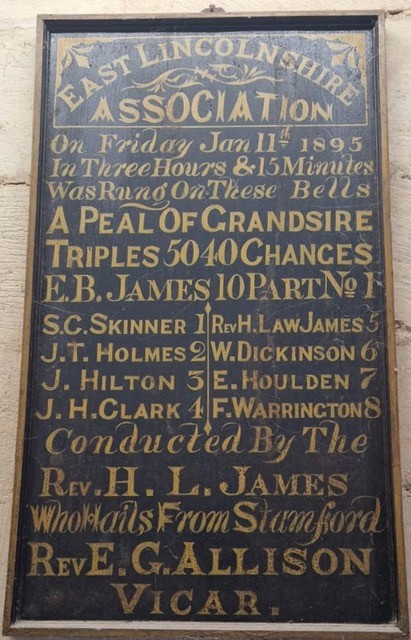 EAST LINCOLNSHIRE
ASSOCIATION
On Friday Jan 11th 1895
In Three Hours & 15 Minutes
Was Rung On These Bells
A PEAL OF GRANDSIRE
TRIPLES 5040 CHANGES
E.B. JAMES 10 PART No 1
S.C. SKINNER 1 REV H. LAW JAMES 5
J.T. HOLMES 2 W. DICKINSON 6
J. HILTON 3 E. HOULDEN 7
J. H. CLARK 4 F. WARRINGTON 8
Conducted By The
REV. H. L. JAMES
Who Hails From Stamford
REV E. G. ALLISON
VICAR.